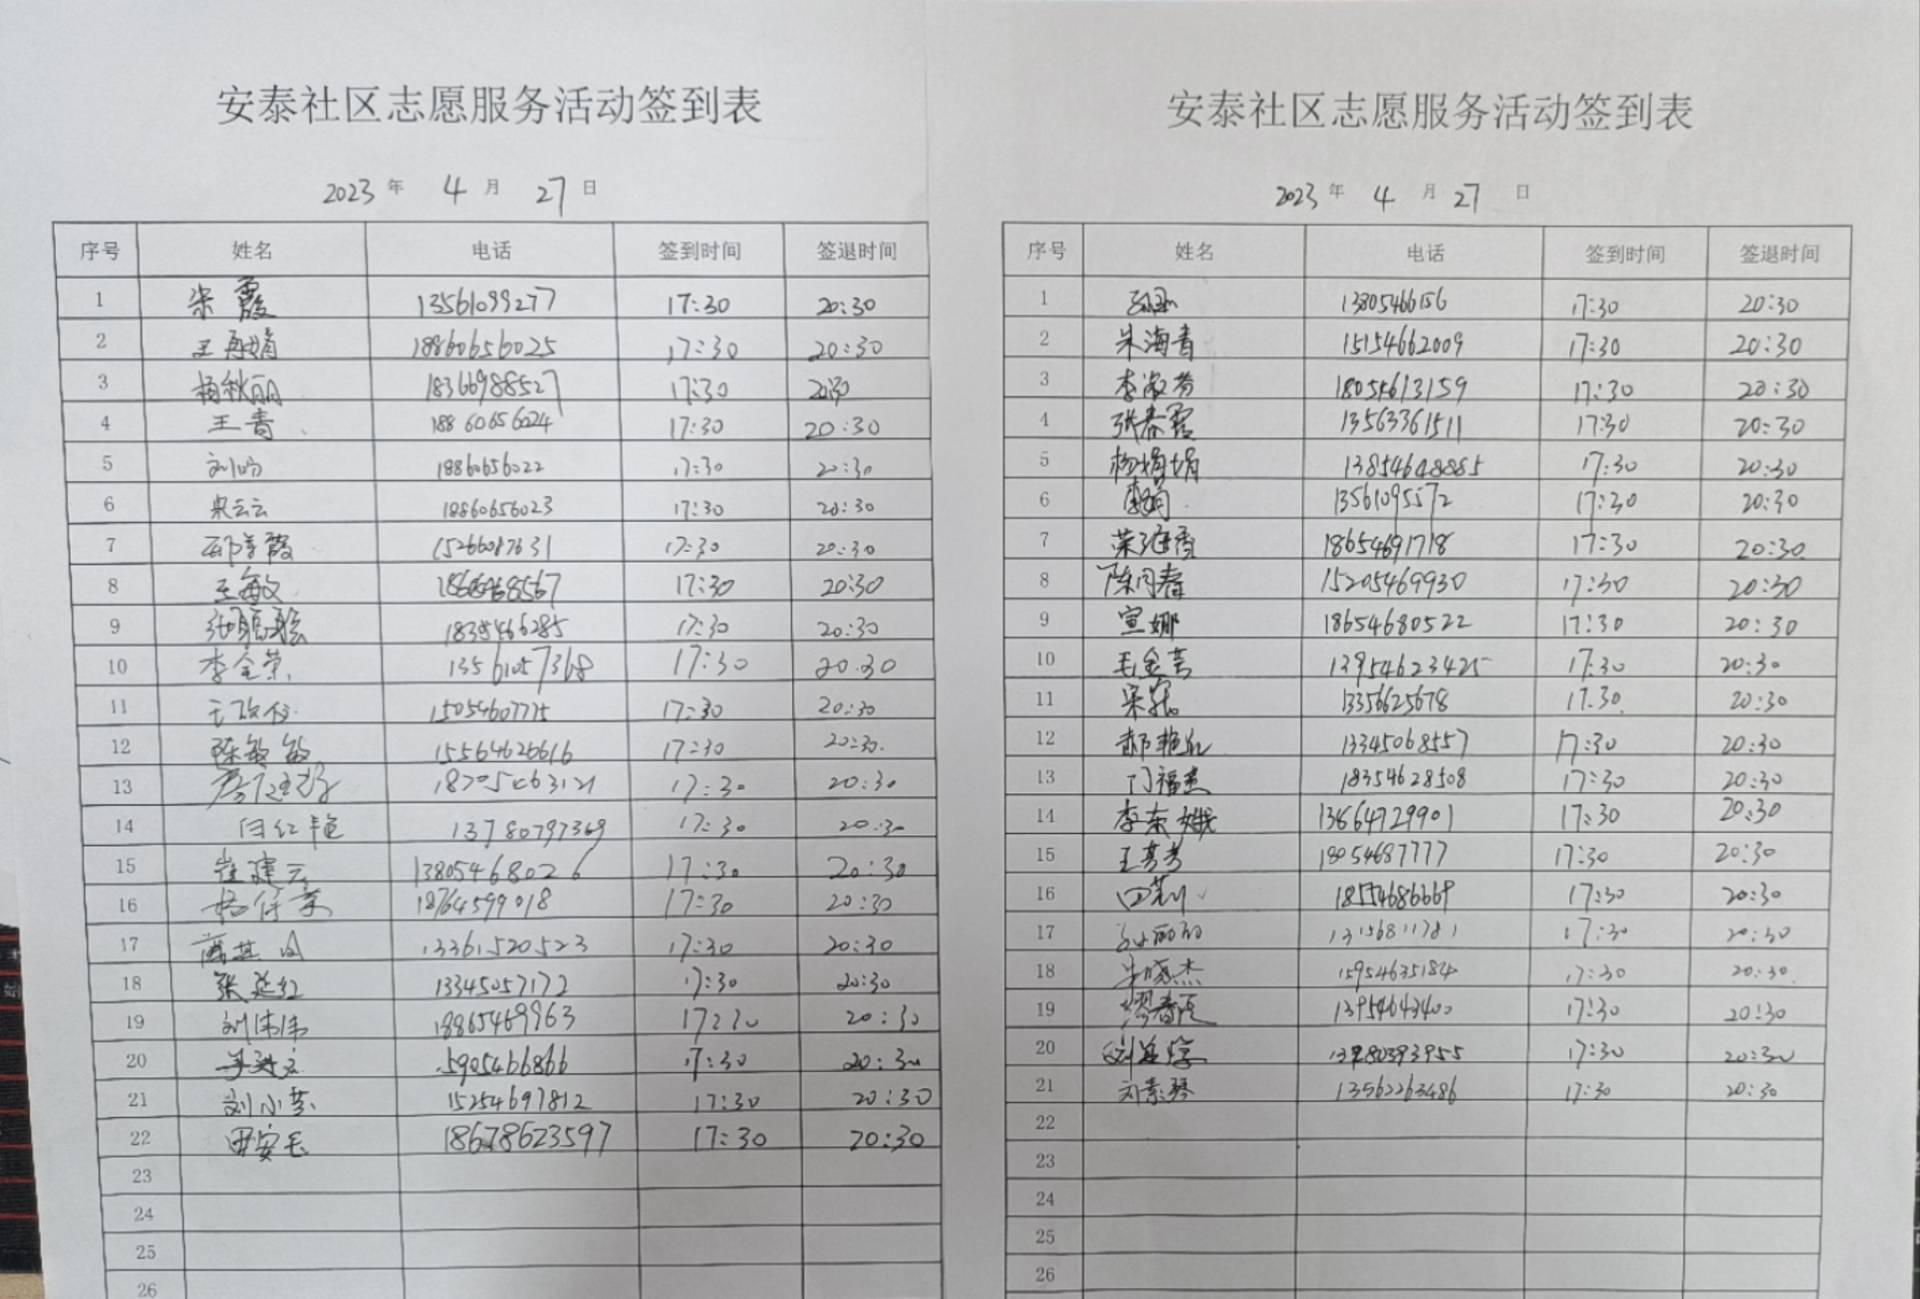 安泰社区志愿服务活动签到表
2023 年 4 月 27 日
序号 姓名 电话 签到时间 签退时间
1 宋霞 13561099277 17:30 20:30
2 王再娟 18860656025 17:30 20:30
3 杨秋丽 18366988527 17:30 20:30
4 王青 18860656024 17:30 20:30
5 18860656022 17:30 20:30
6 云云 18860656023 17:30 20:30
7 15266087631 17:30 20:30
8 王敏 17:30 20:30
9 17:30 20:30
10 李全荣 13561057368 17:30 20:30
11 15054607775 17:30 20:30
12 陈敏敏 15564626616 17:30 20:30
13 17:30 20:30
14 红艳 13780797369 17:30 20:30
15 崔建云 13805468026 17:30 20:30
16 18764599018 17:30 20:30
17 13361520523 17:30 20:30
18 张延红 13345057172 17:30 20:30
19 刘伟伟 18865469963 17:30 20:30
20 5905466866 17:30 20:30
21 刘小芬 15254697812 17:30 20:30
22 田安 18678623597 17:30 20:30
23
24
25
26
安泰社区志愿服务活动签到表
2023 年 4 月 27 日
序号 姓名 电话 签到时间 签退时间
1 13805466156 17:30 20:30
2 朱海青 15154662009 17:30 20:30
3 李淑芳 17:30 20:30
4 张春霞 13563361511 17:30 20:30
5 杨娟娟 13854648885 17:30 20:30
6 13561095572 17:30 20:30
7 荣海香 18654691718 17:30 20:30
8 陈同春 15205469930 17:30 20:30
9 宣娜 18654680522 17:30 20:30
10 毛金芸 13954623425 17:30 20:30
11 宋 13356625678 17:30 20:30
12 郝艳红 13345068557 17:30 20:30
13 门福 18354628508 17:30 20:30
14 李东娥 13864729901 17:30 20:30
15 王 18054687777 17:30 20:30
16 田莉 18554686669 17:30 20:30
17 13156811781 17:30 20:30
18 晓杰 15954635184 17:30 20:30
19 13954643400 17:30 20:30
20 13780393955 17:30 20:30
21 刘素琴 13562263486 17:30 20:30
22
23
24
25
26